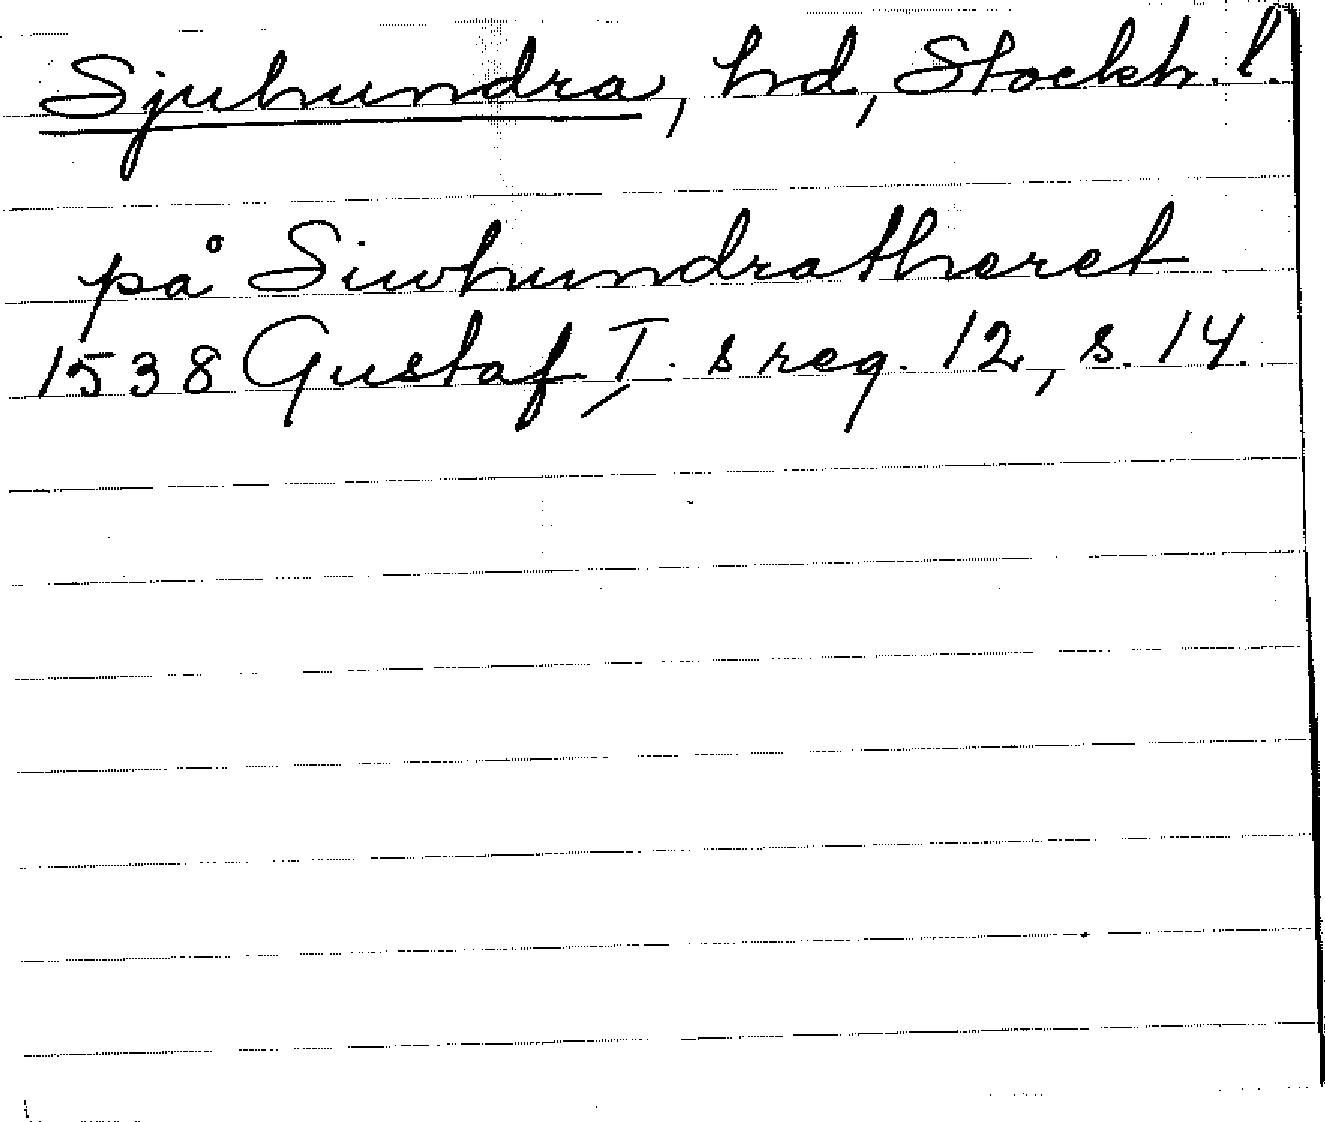 Sjuhundra, hd, Stockh. l.
på Siwhundratheret
1538 Gustaf I. s reg. 12, s. 14.